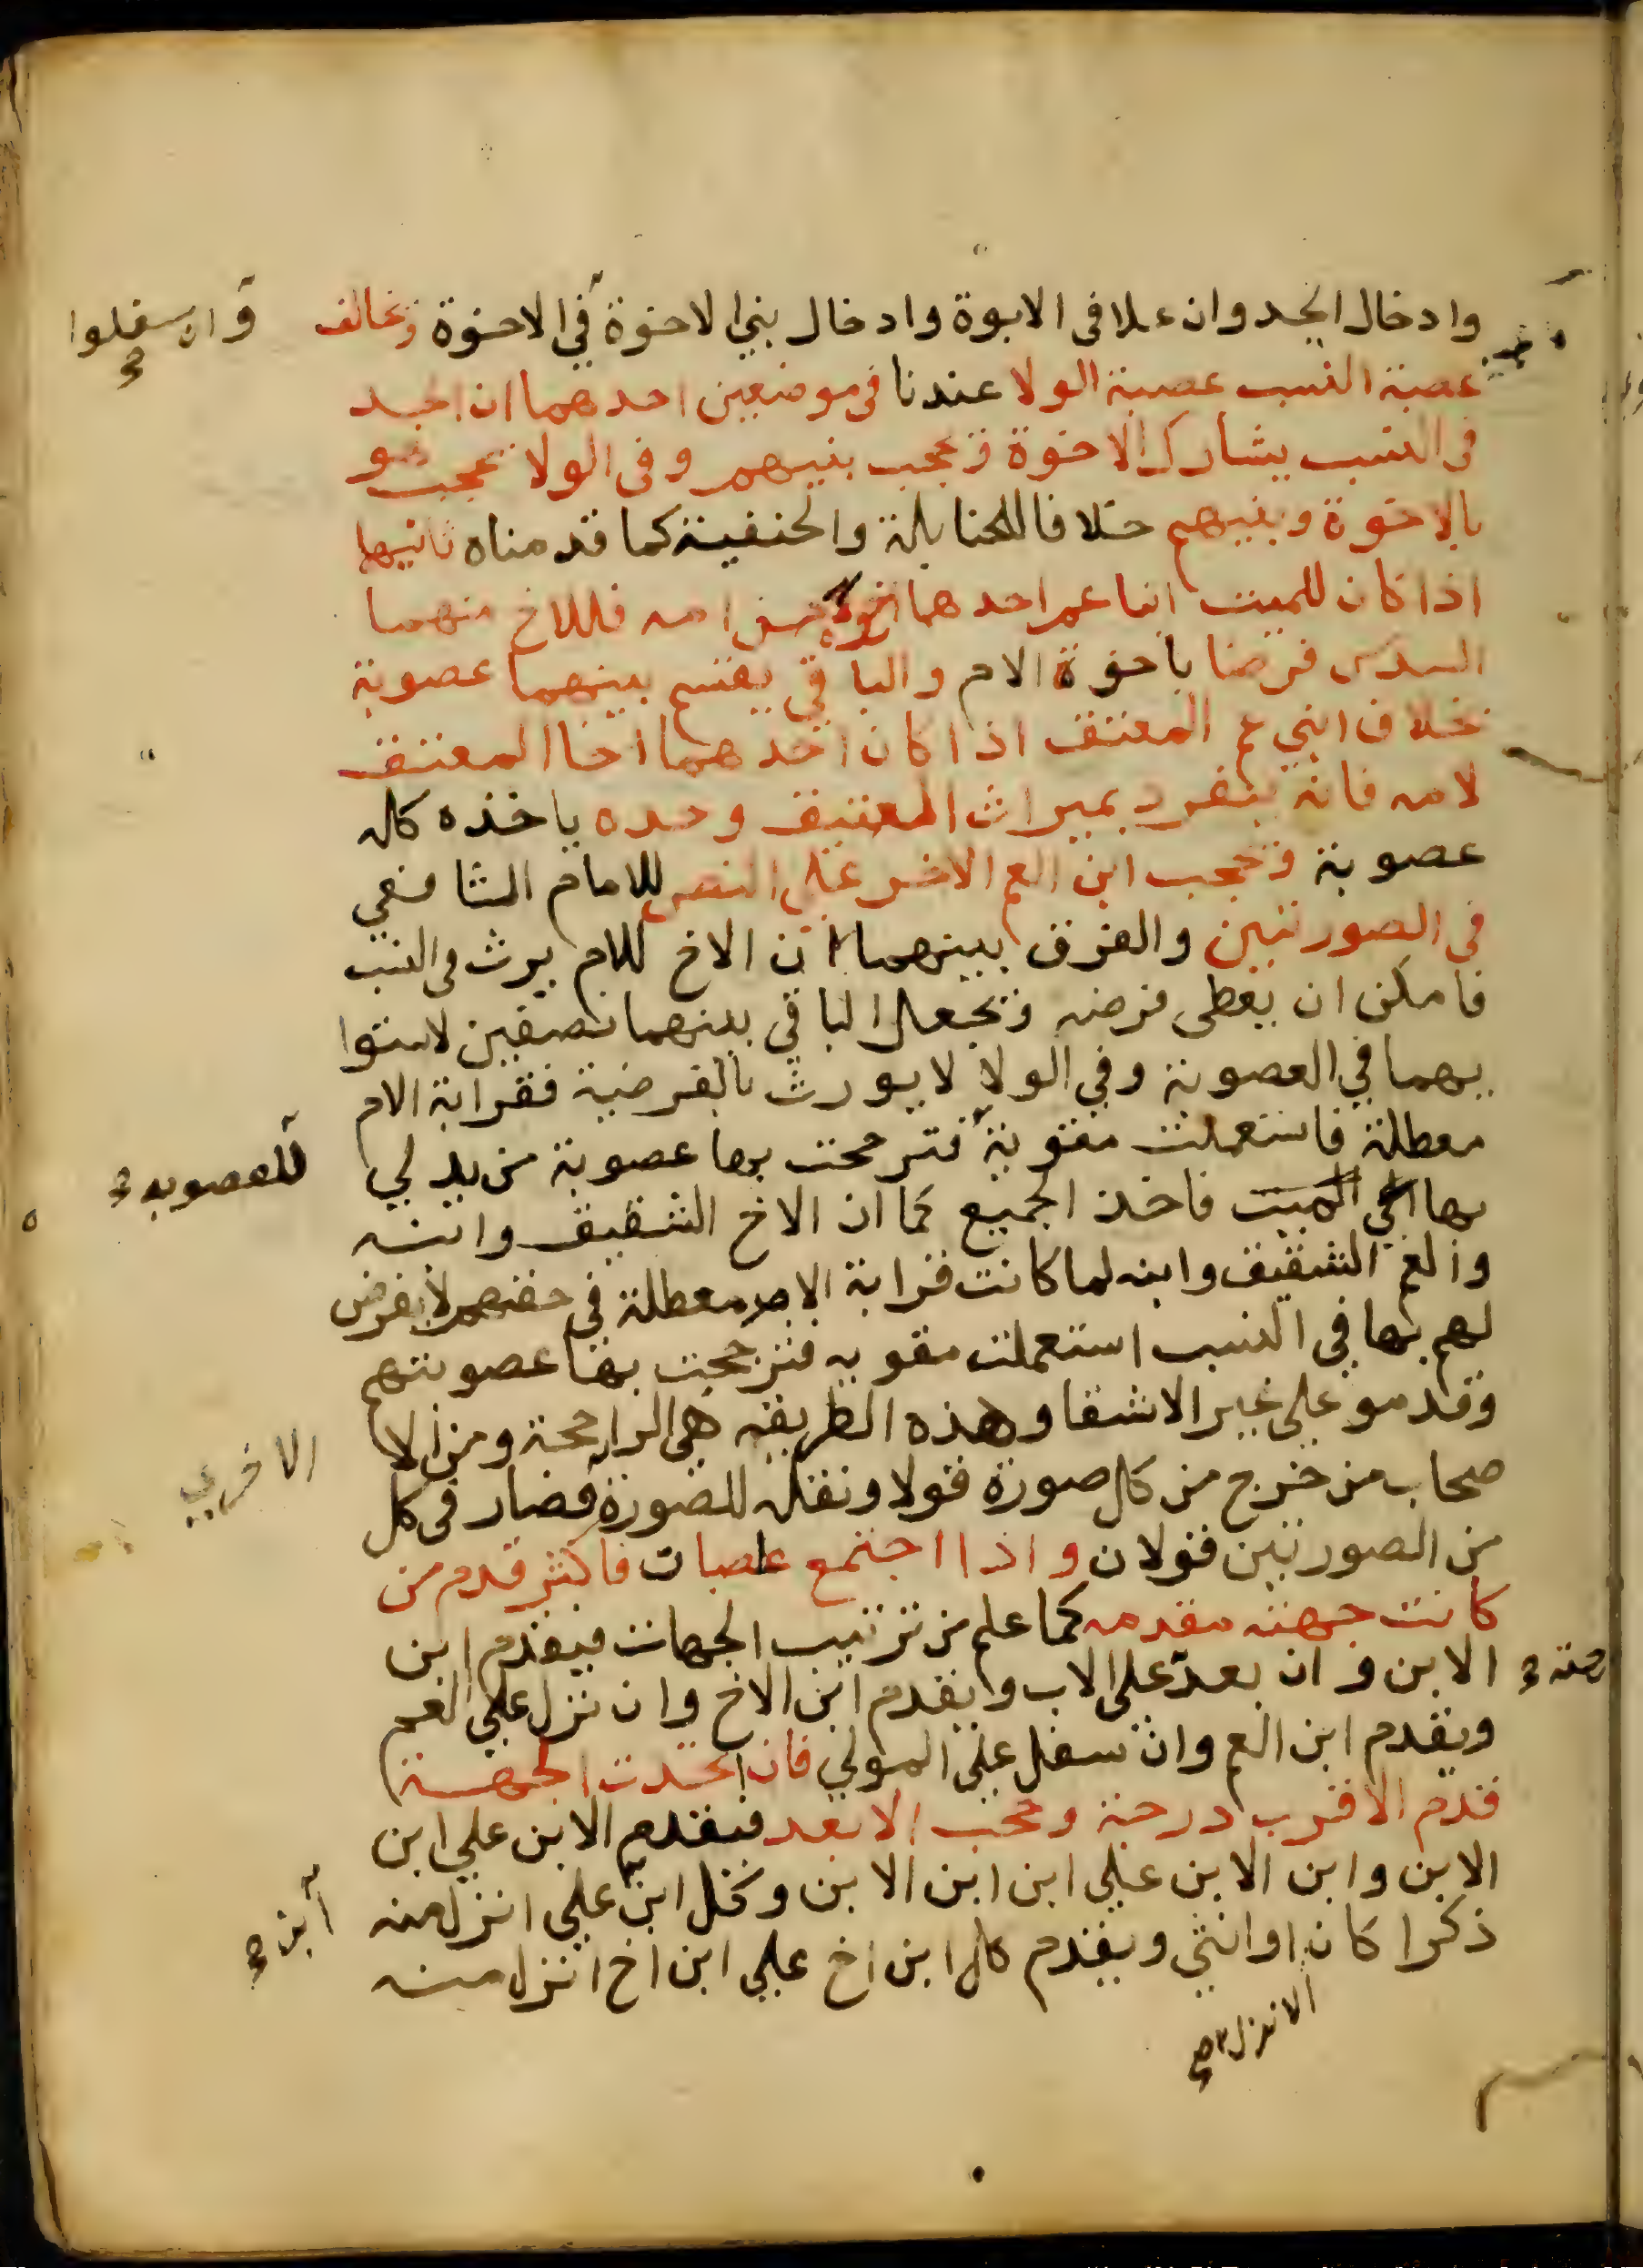 وادخال الجد وان علا فى الابوة وادخال بني الاخوة في الاخوة وتخالف
وان سفلوا صح
عصبة النسب عصبة الولا عندنا فى موضعين احدهما ان الجد
فى النسب يشارك الاخوة ويحجب بنيهم وفى الولا يحجب هو
بالاخوة وبنيهم خلافا للحنابلة والحنفية كما قدمناه ثانيها
اذا كان للميت ابنا عم احدهما اخوه من امه فللاخ منهما
السدس فرضا باخوة الام والباقي يقسم بينهما عصوبة
بخلاف ابني عم المعتق اذا كان احدهما اخا المعتق
لامه فانه ينفرد بميراث العتيق وحده ياخذه كله
عصوبة ويحجب ابن العم الاخر على النص للامام الشافعي
فى الصورتين والفرق بينهما ان الاخ للام يرث فى النسب
فامكن ان يعطى فرضه ويجعل الباقي بينهما نصفين لاستوا
يهما في العصوبة وفي الولا لا يورث بالفرضية فقرابة الام
معطلة فاستعملت مقوية فترجحت بها عصوبة من يدلي
للعصوبه صح
بها الي الميت فاخذ الجميع كما ان الاخ الشقيق وابنه
والعم الشقيق وابنه لما كانت قرابة الام معطلة في حقهم لا يفرض
لهم بها في النسب استعملت مقويه فترجحت بها عصوبتهم
وقدمو علي غير الاشقا وهذه الطريقه هي الراجحة ومن الا
صحاب من خرج من كل صورة قولا ونقله للصورة فصار فى كل
الاخري
من الصورتين قولان واذا اجتمع عاصبان فاكثر قدم من
كانت جهته مقدمه كما علم من ترتيب الجهات فيقدم ابن
الابن وان بعد على الاب ويقدم ابن الاخ وان نزل علي العم
جهته صح
ويقدم ابن العم وان سفل على المولي فان اتحدت الجهة
قدم الاقرب درجة وحجب الابعد فيقدم الابن علي ابن
الابن وابن الابن علي ابن ابن الابن وكل ابن علي انزل منه
ابن صح
ذكرا كان او انثي ويقدم كل ابن اخ علي ابن اخ انزل منه
الانزل صح